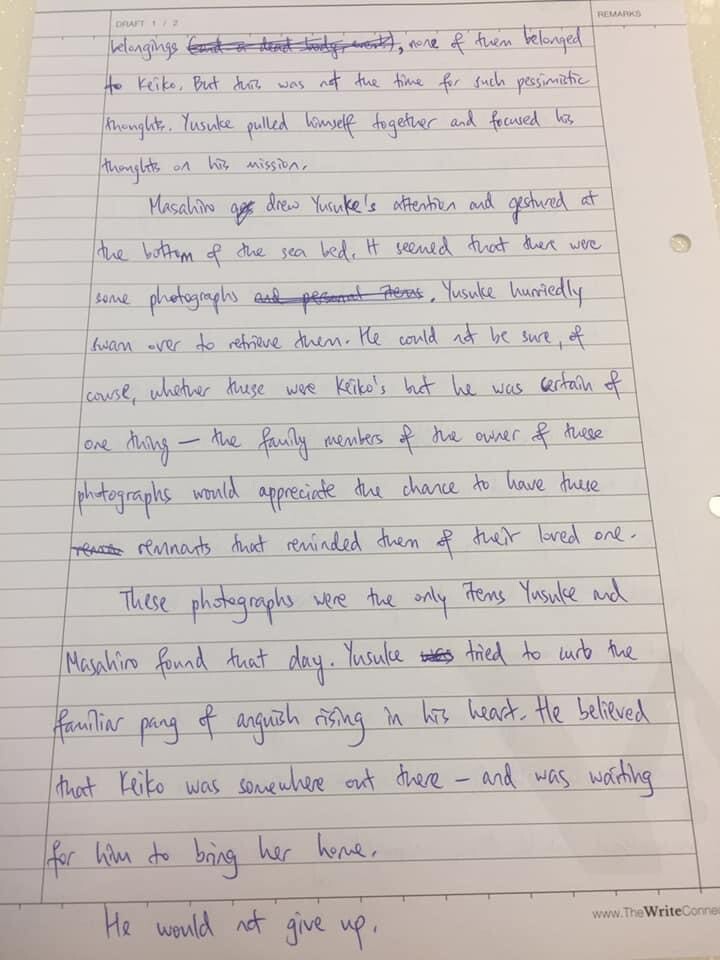 DRAFT 1 / 2
REMARKS
belongings (and a dead body, even), none of them belonged
to Keiko. But this was not the time for such pessimistic
thoughts. Yusuke pulled himself together and focused his
thoughts on his mission.
Masahiro drew Yusuke's attention and gestured at
the bottom of the sea bed. It seemed that there were
some photographs and personal items. Yusuke hurriedly
swam over to retrieve them. He could not be sure, of
course, whether these were Keiko's but he was certain of
one thing — the family members of the owner of these
photographs would appreciate the chance to have these
remnants that reminded them of their loved one.
These photographs were the only items Yusuke and
Masahiro found that day. Yusuke was tried to curb the
familiar pang of anguish rising in his heart. He believed
that Keiko was somewhere out there – and was waiting
for him to bring her home.
He would not give up.
www.TheWriteConne